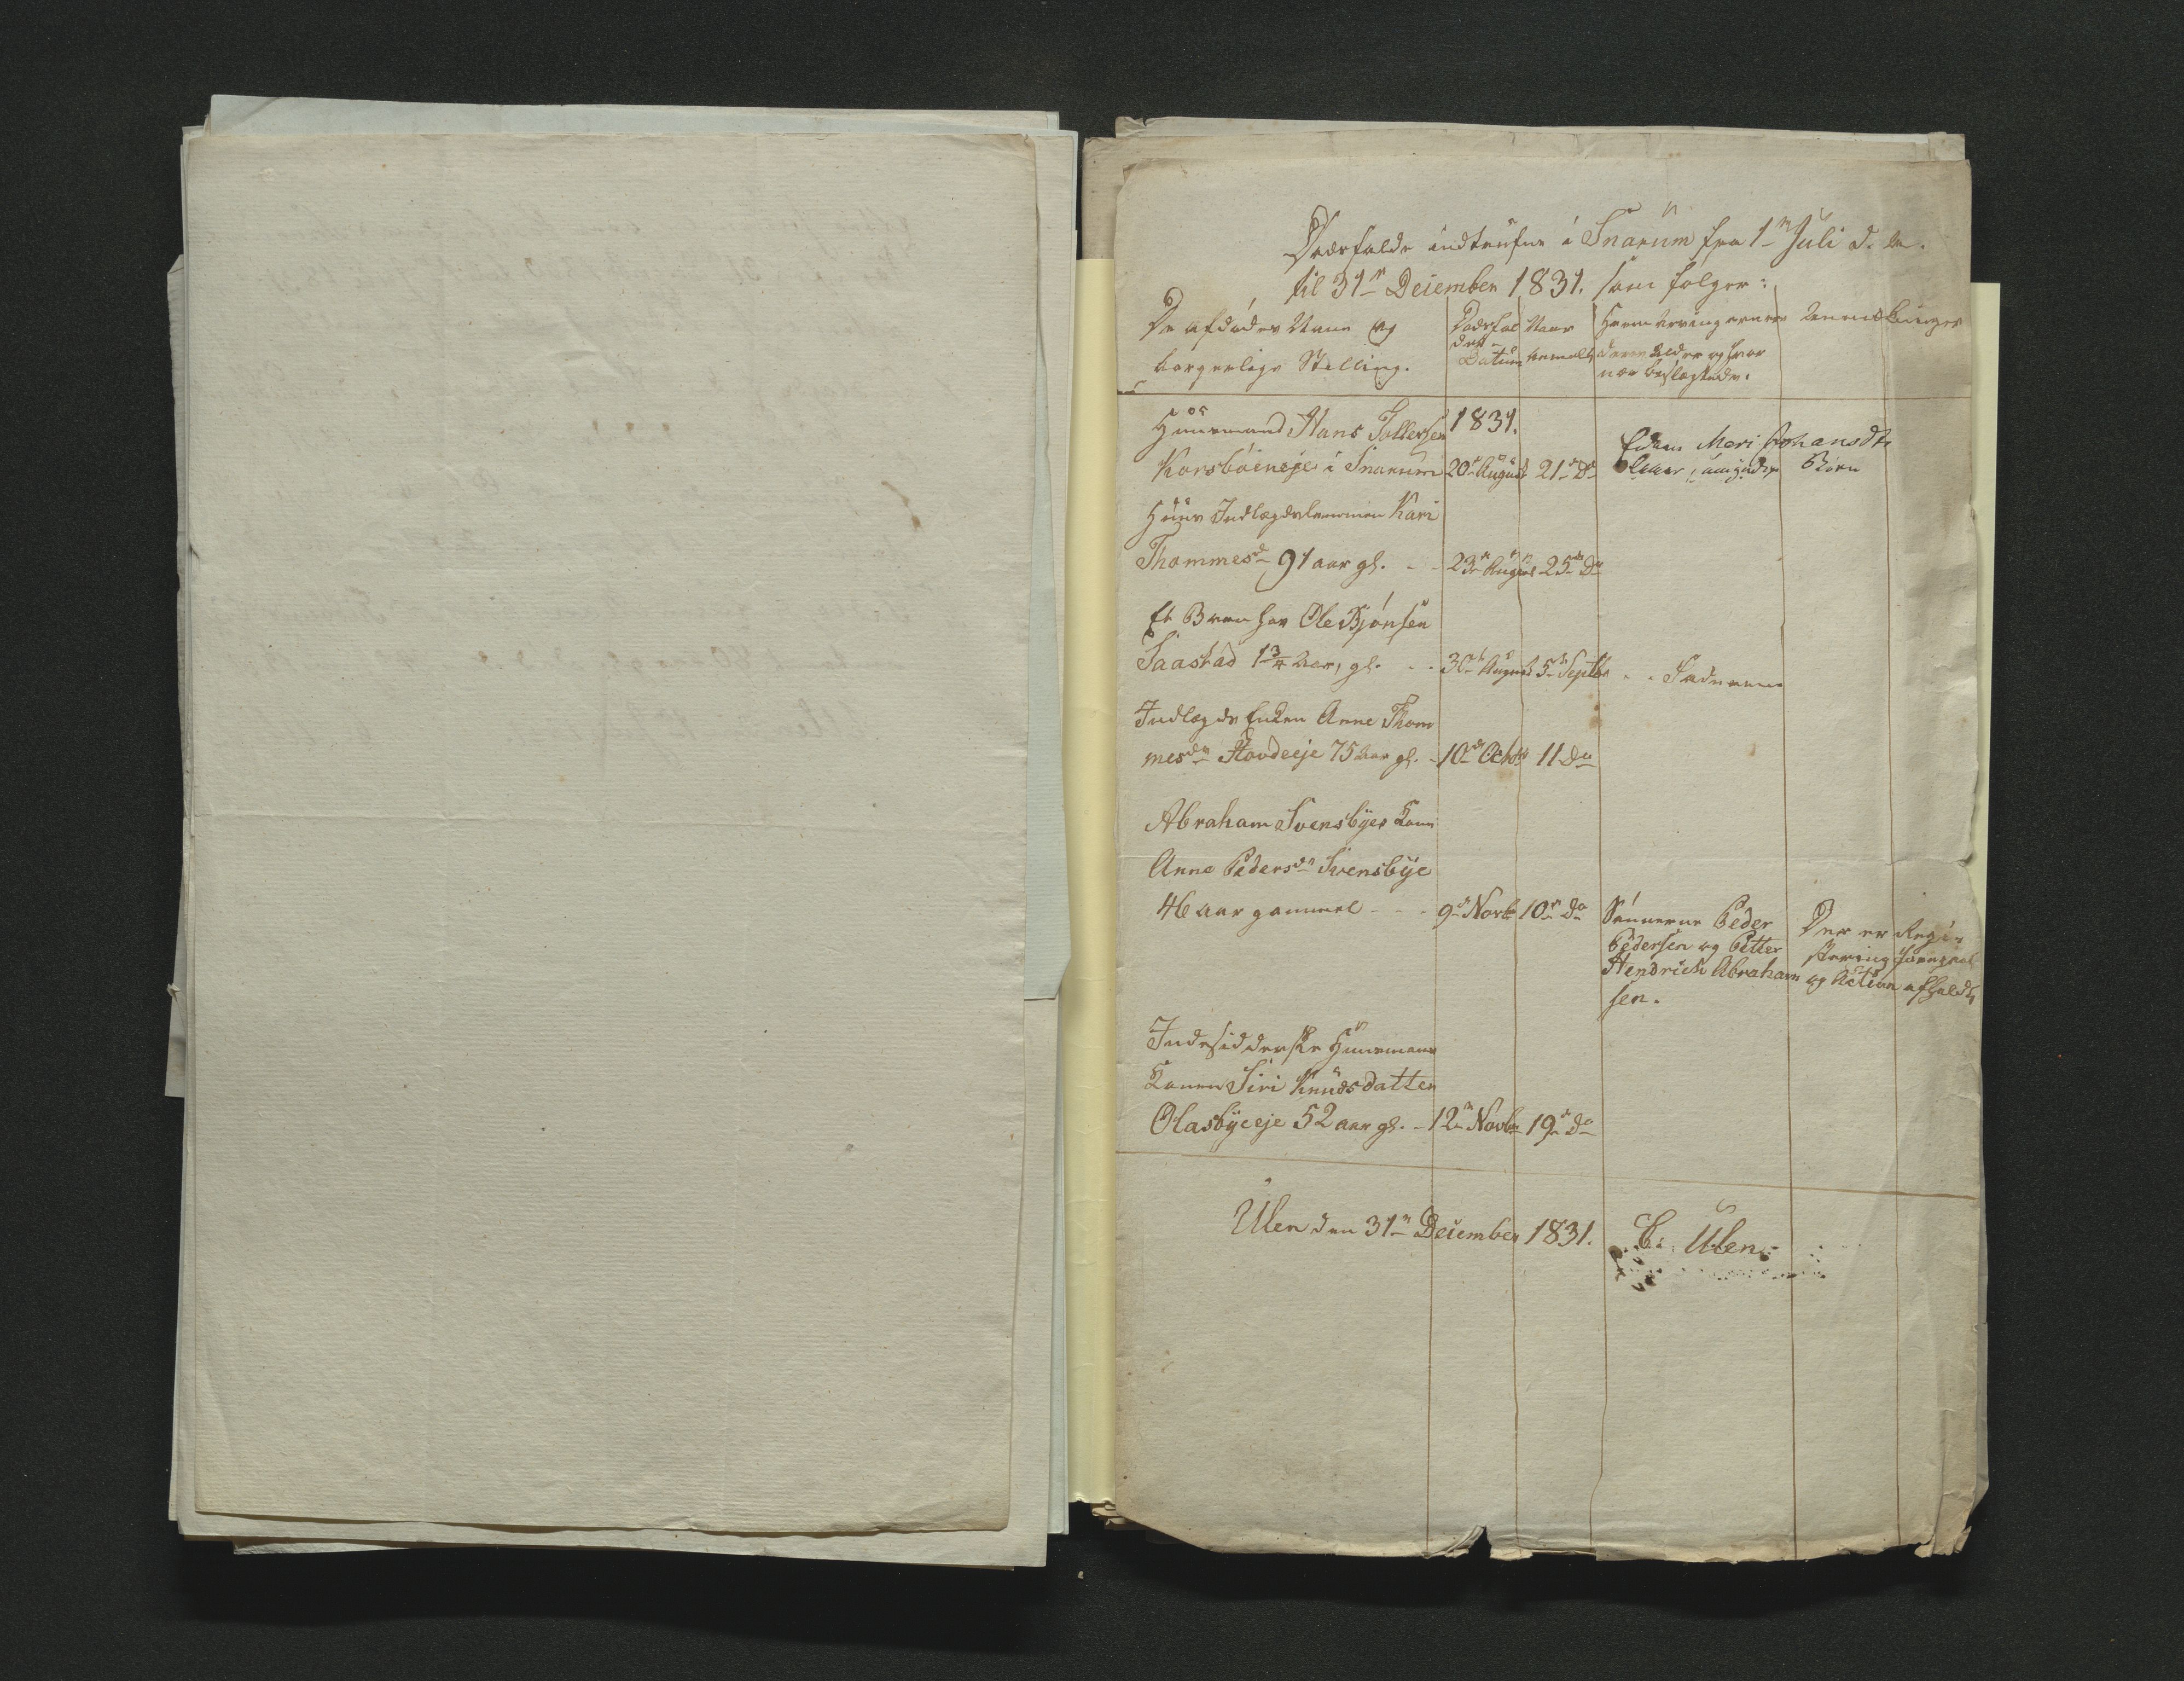 Dødsfalde indtrufne i Snarum fra 1n Juli d. A.
til 31n December 1831. som følger:
De afdødes Navn og
borgerlige Stilling.
Dødsfal
dets
Datum
Naar
anmeldt
Hvem Arvingerne er
deres Alder og hvor
nær beslægtede.
Anmerkninger
Huusmand Hans Tollefsen
Korsbøineje i Snarum
1831.
20de August 21de Do
Enken Mari Johansdtr
umyndige Børn
Huus Indlægdslemmen Kari
Thommesd 91 aar gl. - - 23de August 25de Do
Et Barn for Ole Bjönsen
Saastad 1 3/4 Aar, gl. - - 30de August 5de Septbr - - Faderen
Indlægds Enken Anne Thom
mesdr Hovdeeje 75 Aar gl. - 10de Octbr 11 Do
Abraham Svensbyes Kone
Anne Pedersdr Svensbye
46 Aar gammel - - - 9de Novbr 10de do
Sønnerne Peder
Pedersen og Petter
Hendrich Abraham
sen.
Der er Regi-
stering foregaaet
og Action afholdt
Indesidderske Huusmands
Konen Siri Knudsdatter
Olasbyeeje 52 aar gl. - 12n Novbr 19de do
Ulen den 31n December 1831.
C: Ulen